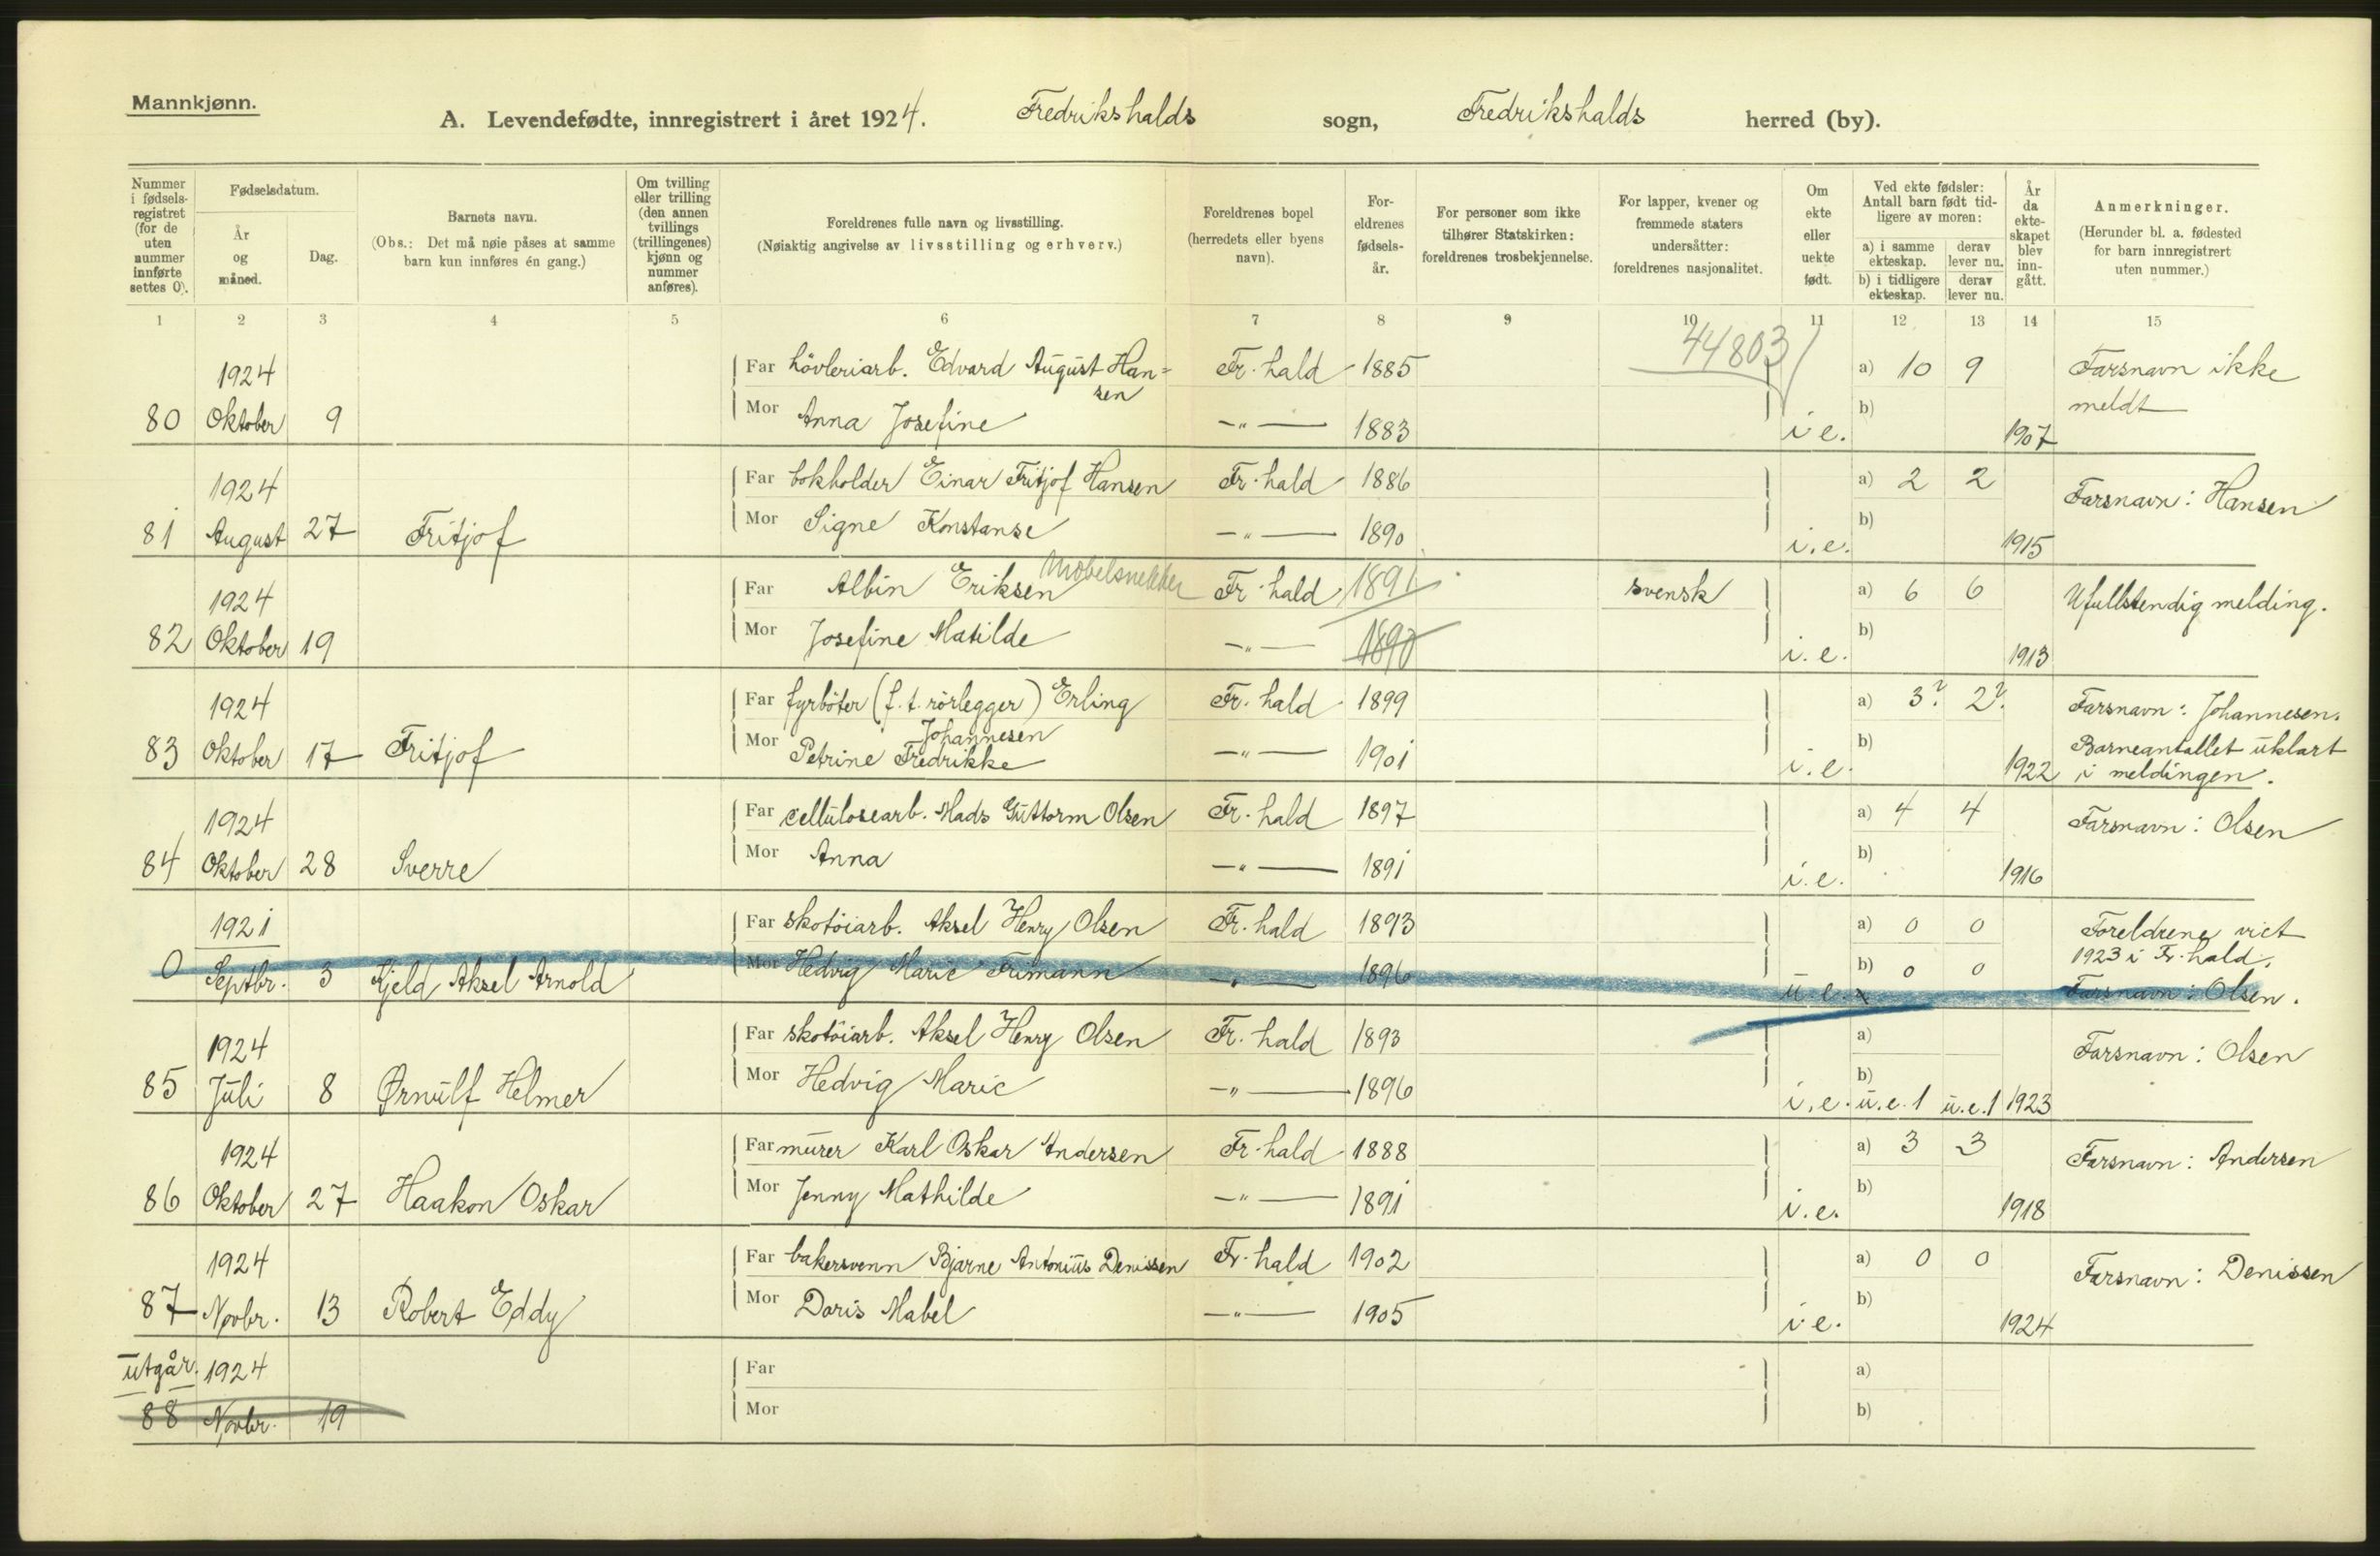 Mannkjønn.
A. Levendefødte, innregistrert i året 1924. Fredrikshalds sogn, Fredrikshalds herred (by).
Nummer i fødsels-registret (for de uten nummer innførte settes 0).
Fødselsdatum.
År og måned.
Dag.
Barnets navn.
(Obs.: Det må nøie påses at samme barn kun innføres én gang.)
Om tvilling eller trilling (den annen tvillings (trillingenes) kjønn og nummer anføres).
Foreldrenes fulle navn og livsstilling.
(Nøiaktig angivelse av livsstilling og erhverv.)
Foreldrenes bopel (herredets eller byens navn).
For-eldrenes fødsels-år.
For personer som ikke tilhører Statskirken: foreldrenes trosbekjennelse.
For lapper, kvener og fremmede staters undersåtter: foreldrenes nasjonalitet.
Om ekte eller uekte født.
Ved ekte fødsler: Antall barn født tid-ligere av moren:
a) i samme ekteskap. derav lever nu.
b) i tidligere ekteskap. derav lever nu.
År da ekte-skapet blev inn-gått.
Anmerkninger.
(Herunder bl. a. fødested for barn innregistrert uten nummer.)
1 2 3 4 5 6 7 8 9 10 11 12 13 14 15
44803
1924 Far hövleriarb. Edvard August Han= Fr.hald 1885 a) 10 9 Farsnavn ikke
sen
80 Oktober 9 Mor Anna Josefine —"— 1883 i e. b) 1907 meldt
1924 Far bokholder Einar Fritjof Hansen Fr.hald 1886 a) 2 2 Farsnavn: Hansen
81 August 27 Fritjof Mor Signe Konstanse —"— 1890 i.e. b) 1915
1924 Far Albin Eriksen Møbelsnekker Fr.hald 1891 svensk a) 6 6 Ufullstendig melding.
82 Oktober 19 Mor Josefine Matilde —"— 1890 i.e. b) 1913
1924 Far fyrböter (f.t. rörlegger) Erling Fr.hald 1899 a) 3? 2? Farsnavn: Johannesen.
Johannesen
83 Oktober 17 Fritjof Mor Petrine Fredrikke —"— 1901 i.e. b) 1922 Barneantallet uklart
i meldingen.
1924 Far cellulosearb. Mads Guttorm Olsen Fr.hald 1897 a) 4 4 Farsnavn: Olsen
84 Oktober 28 Sverre Mor Anna —"— 1891 i.e. b) 1916
1921 Far skotöiarb. Aksel Henry Olsen Fr.hald 1893 a) 0 0 Foreldrene viet
1923 i Fr.hald.
0 Septbr. 3 Kjeld Aksel Arnold Mor Hedvig Marie Frimann —"— 1896 u.e. b) 0 0 Farsnavn: Olsen.
1924 Far skotöiarb. Aksel Henry Olsen Fr.hald 1893 a) Farsnavn: Olsen
85 Juli 8 Ørnulf Helmer Mor Hedvig Marie —"— 1896 i.e. b) u.e.1 u.e.1 1923
1924 Far murer Karl Oskar Andersen Fr.hald 1888 a) 3 3 Farsnavn: Andersen
86 Oktober 27 Haakon Oskar Mor Jenny Mathilde —"— 1891 i.e. b) 1918
1924 Far bakersvenn Bjarne Antonius Denissen Fr.hald 1902 a) 0 0 Farsnavn: Denissen
87 Novbr. 13 Robert Eddy Mor Doris Mabel —"— 1905 i.e. b) 1924
utgår. 1924 Far a)
88 Novbr. 19 Mor b)